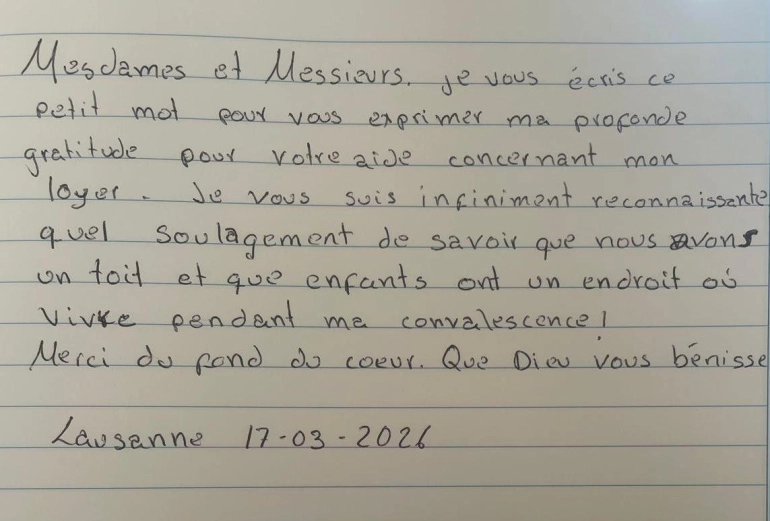 Mesdames et Messieurs. je vous écris ce
petit mot pour vous exprimer ma profonde
gratitude pour votre aide concernant mon
loyer. Je vous suis infiniment reconnaissante
quel soulagement de savoir que nous avons
un toit et que enfants ont un endroit où
vivre pendant ma convalescence!
Merci du fond du coeur. Que Dieu vous bénisse
Lausanne 17-03-2026